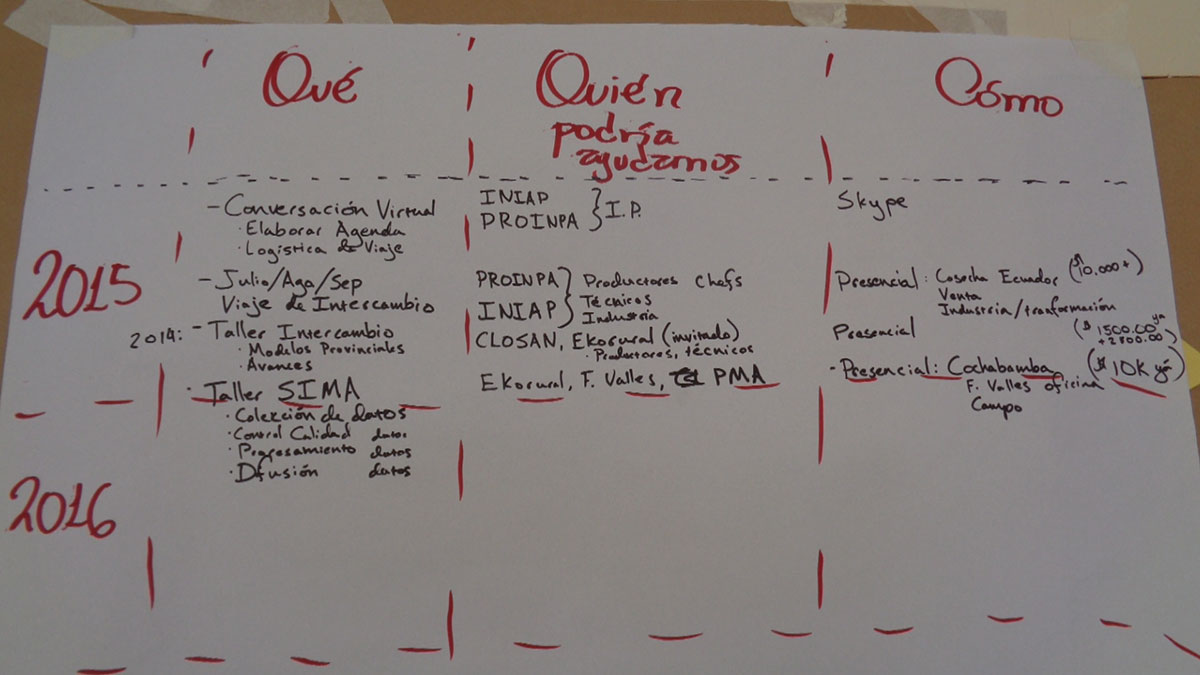 Qué
Quién
podría
ayudarnos
Cómo
2015
- Conversación Virtual
· Elaborar Agenda
· Logística de Viaje
INIAP
PROINPA
} I.P.
Skype
- Julio/Ago/Sep
Viaje de Intercambio
PROINPA
INIAP
} Productores Chefs
Técnicos
Industria
Presencial: Cosecha Ecuador ($10.000+)
Venta
Industria/tranformación
2014: - Taller Intercambio
· Modelos Provinciales
· Avances
CLOSAN, Ekorural (invitado)
· Productores, técnicos
Presencial ($1500.00 ya
+2800.00)
· Taller SIMA
· Colección de datos
· Control Calidad datos
· Procesamiento datos
· Difusión datos
Ekorural, F. Valles, PMA
- Presencial: Cochabamba ($10K ya)
F. Valles oficina
Campo
2016